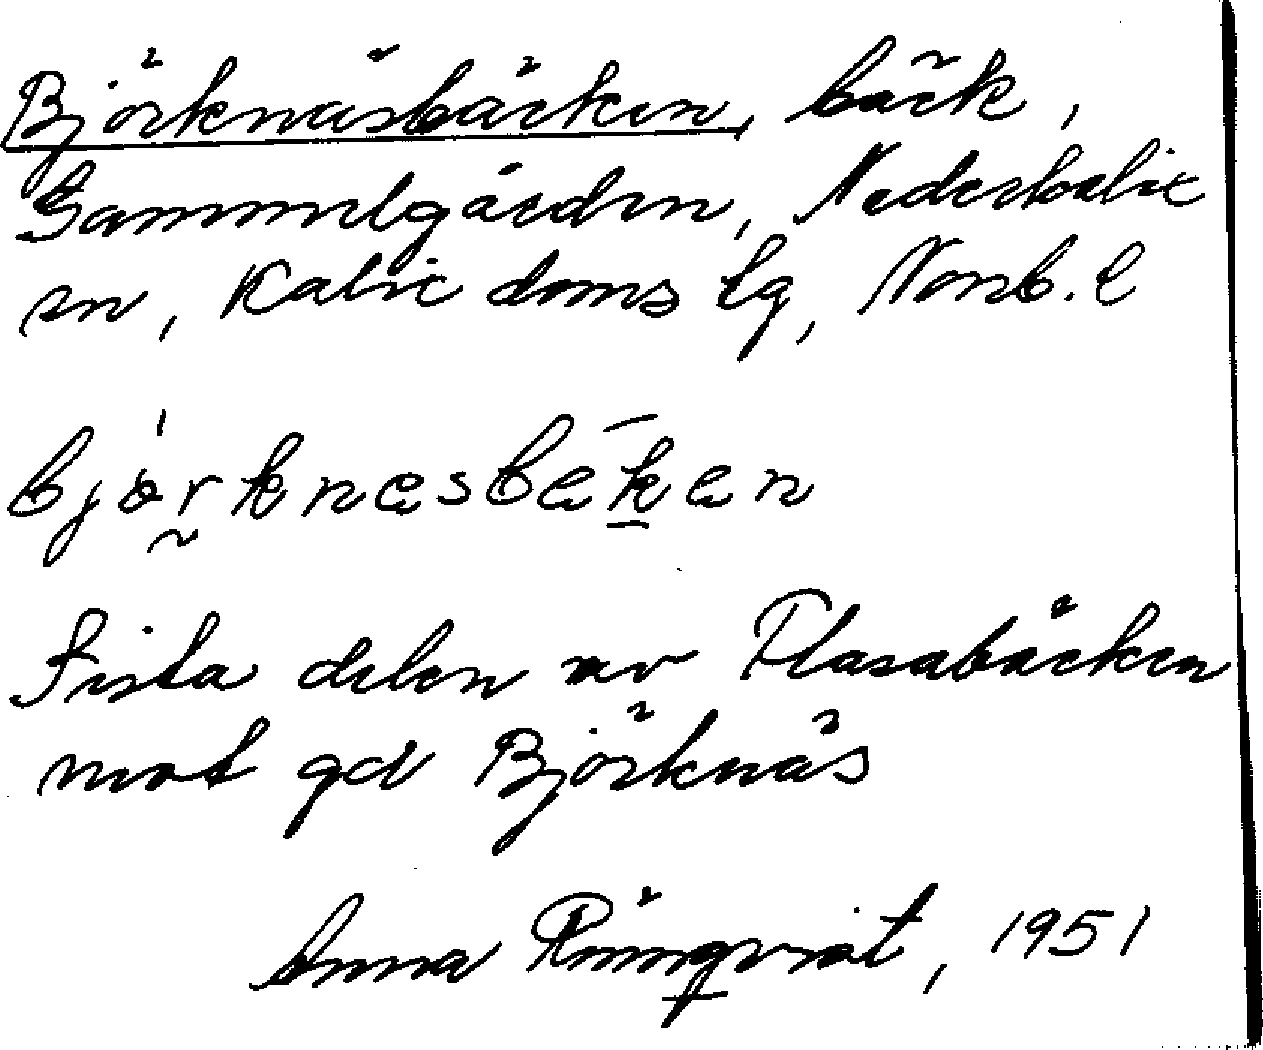 Björknäsbäcken, bäck,
Gammelgården, Nederkalix
sn, Kalix doms lg, Norrb. l
björknesbeken
Sista delen av Plasabäcken
mot gd Björknäs
Anna Rönnqvist, 1951